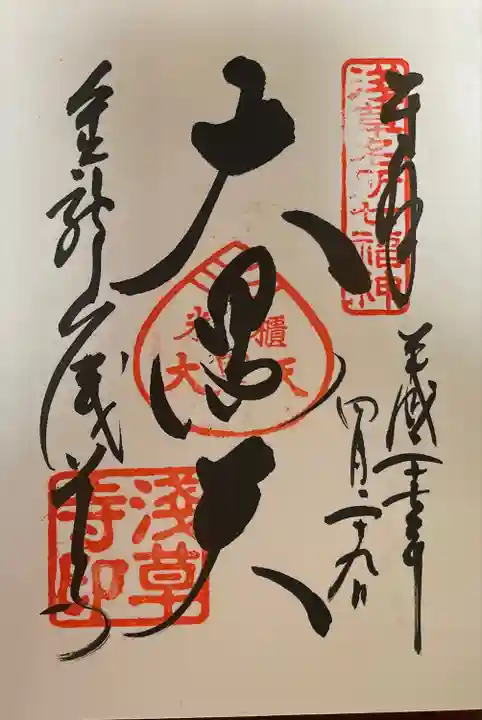 奉拝
浅草名所七福神
平成三十年
四月二十九日
大黒天
米櫃
大黒天
金龍山浅草寺
淺草
寺印